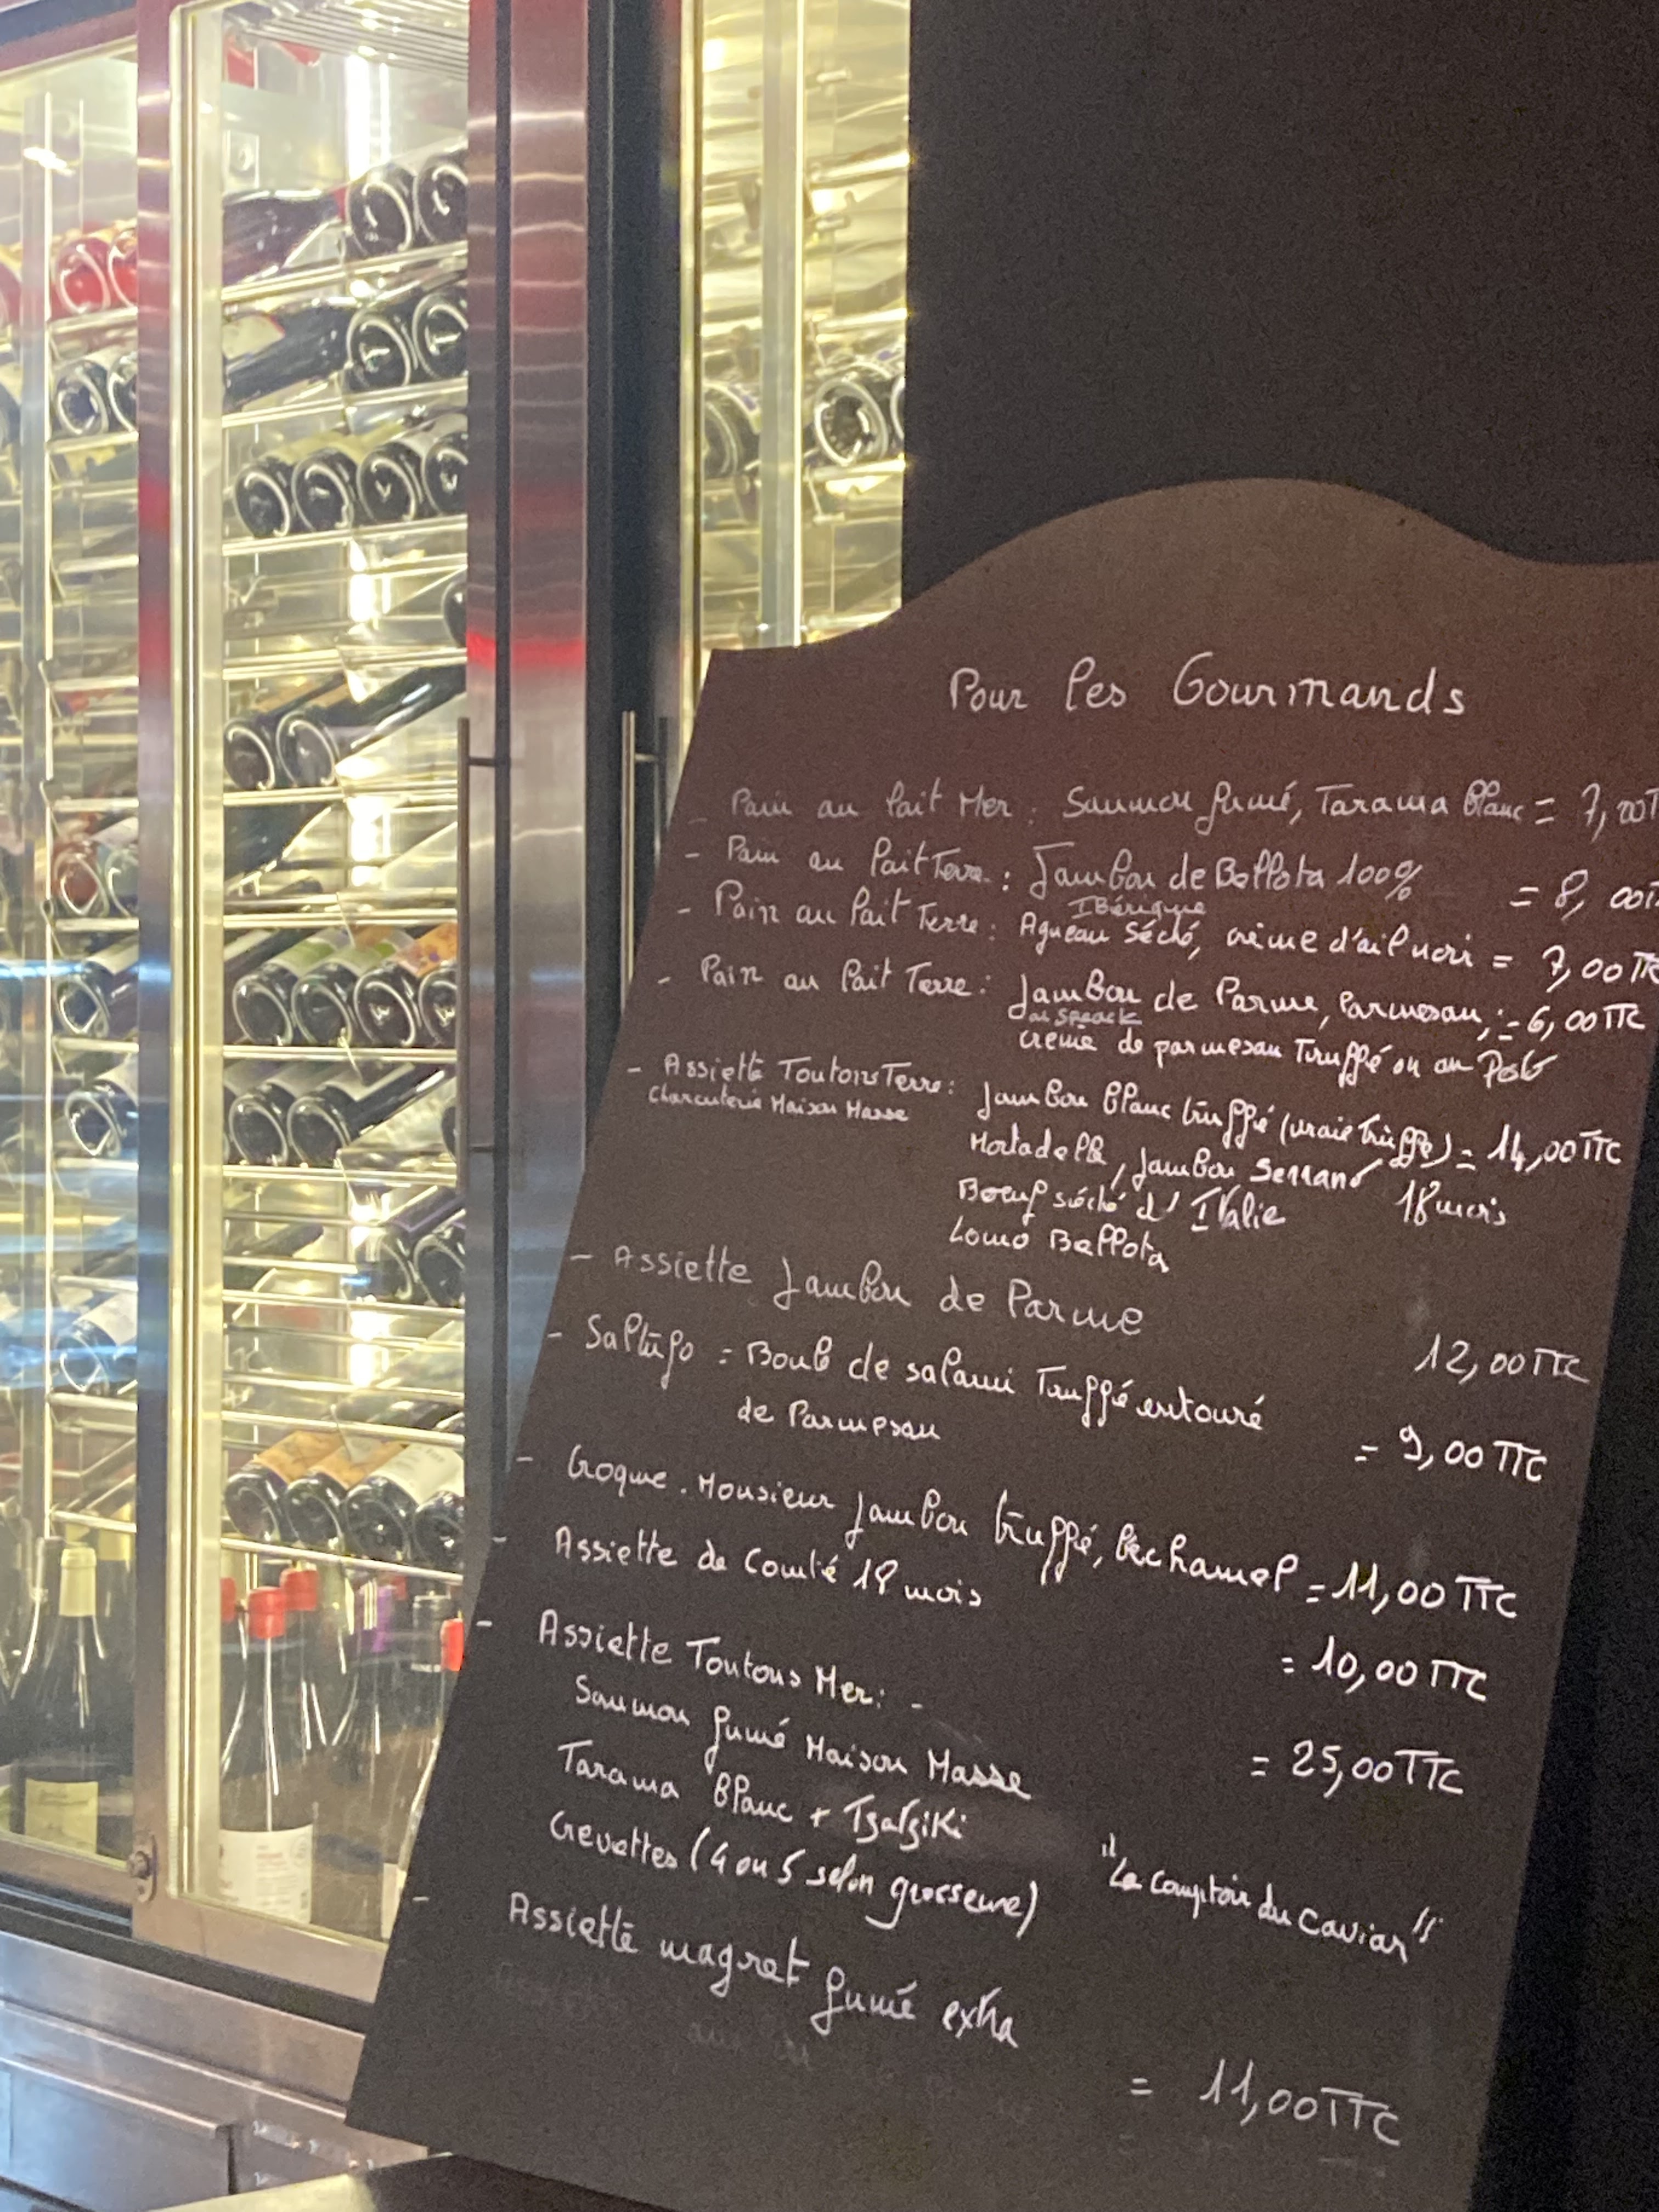 Pour les Gourmands
- Pain au lait Mer : Saumon fumé, Tarama Blanc = 7,00T
- Pain au lait Terre : Jambon de Bellota 100% = 8,00T
Ibérique
- Pain au lait Terre : Agneau Séché, crème d'ail noir = 7,00 TTC
- Pain au lait Terre : Jambon de Parme, Parmesan, = 6,00 TTC
ou Speack
crème de parmesan Truffé ou au Pesto
- Assiette Toutons Terre : Jambon Blanc truffé (vraie truffe) = 14,00 TTC
Charcuterie Maison Masse
Mortadelle, Jambon Serrano 18 mois
Boeuf séché d'Italie
Lomo Bellota
- Assiette Jambon de Parme 12,00 TTC
- Saltufo = Boule de salami Truffé entouré
de Parmesan = 9,00 TTC
- Croque-Monsieur jambon truffé, bechamel = 11,00 TTC
- Assiette de Comté 18 mois = 10,00 TTC
- Assiette Toutons Mer : - = 25,00 TTC
Saumon fumé Maison Masse
Tarama Blanc + Tzatziki
Crevettes (4 ou 5 selon grosseure) "Le Comptoir du Caviar"
- Assiette magret fumé extra
= 11,00 TTC